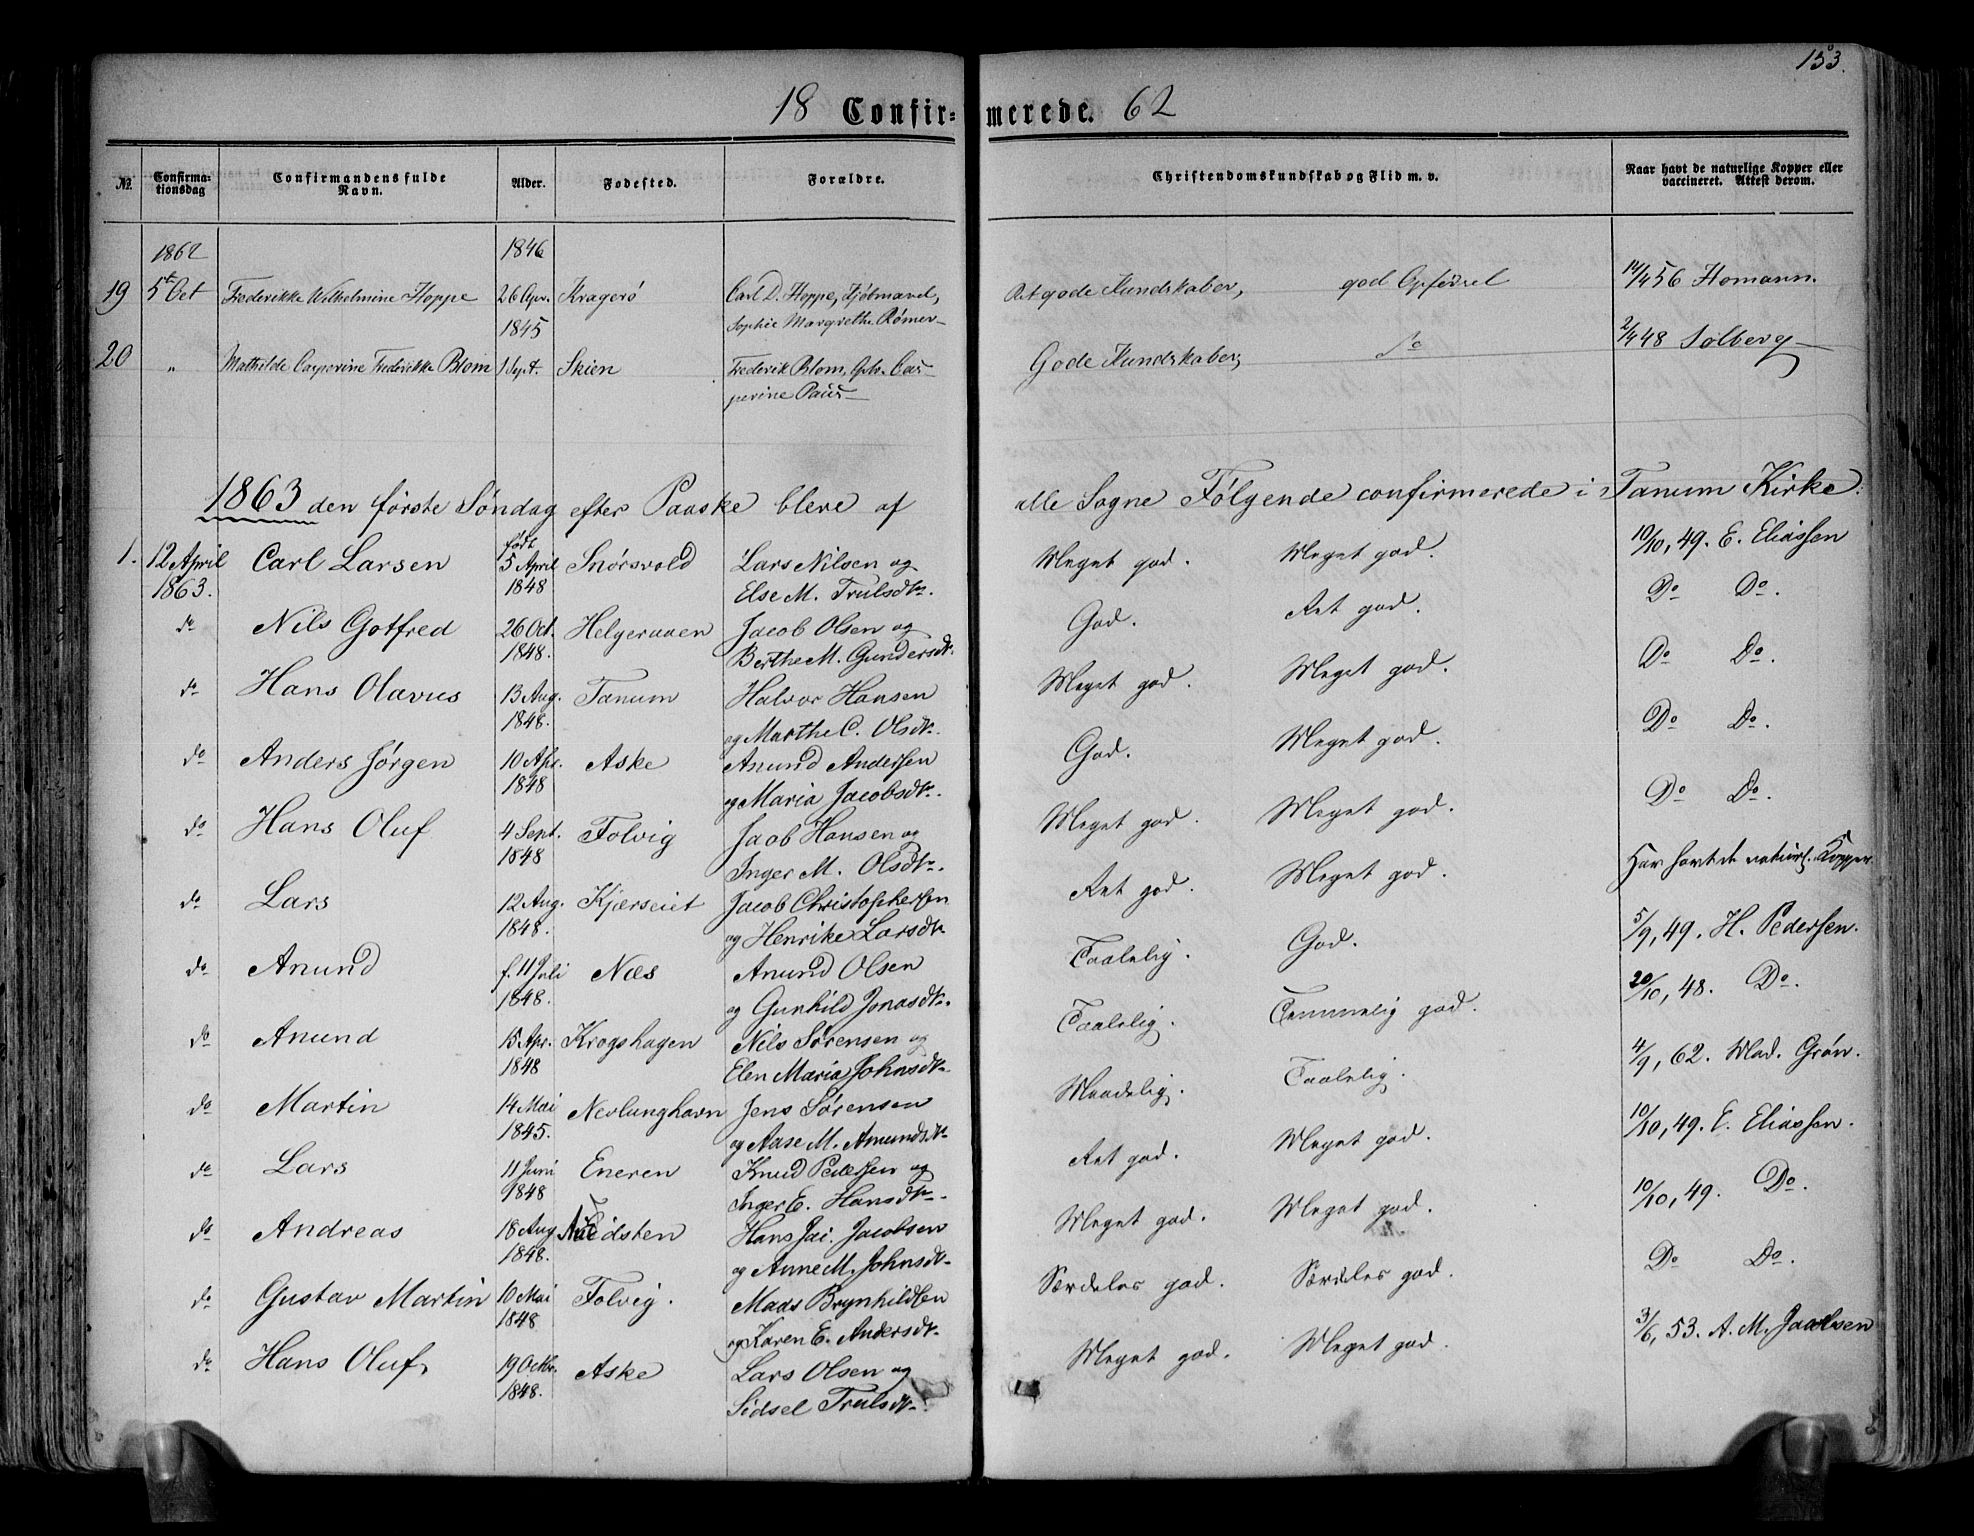 153.
18 Confir= merede. 62
No. Confirma-tionsdag Confirmandens fulde Navn. Alder. Fødested. Forældre. Christendomskundskab og Flid m. v. Naar havt de naturlige Kopper eller vaccineret. Attest derom.
1862 1846
19 5t Oct Frederikke Wilhelmine Hoppe 26 Apr. Kragerø Carl D. Hoppe, Kjøbmand, Ret gode Kundskaber, god Opførsel 14/4 56 Homann.
1845 Sophie Margrethe Rømer
20 " Mathilde Casperine Frederikke Blom 1 Sept. Skien Frederik Blom, Cas- Gode Kundskaber, Do 2/4 48 Solberg
perine Paus
1863 den første Søndag efter Paaske bleve af alle Sogne Følgende confirmerede i Tanum Kirke:
1. 12 April Carl Larsen født 5 April Snørsvold Lars Nilsen og Meget god. Meget god. 10/10, 49. E. Eliassen
1863. 1848 Else M. Trulsdtr.
do Nils Gotfred 26 Oct. Helgeraaen Jacob Olsen og God. Ret god. Do Do.
1848. Berthe M. Gundersdtr.
do Hans Olavus 13 Aug. Tanum Halvor Hansen Meget god. Meget god. Do Do.
1848. og Marthe C. Olsdtr.
do Anders Jørgen 10 Apr. Aske Anund Andersen God. Meget god. Do Do.
1848 og Maria Jacobsdtr.
do Hans Oluf 4 Sept. Folvig Jacob Hansen og Meget god. Meget god. Do Do.
1848 Inger M. Olsdtr.
do Lars 12 Aug. Kjærseiet Jacob Christophersen Ret god. Meget god. Har havt de naturl. Kopper.
1848. og Henrike Larsdtr
do Anund f. 11 Juli Næs Anund Olsen Taalelig. God. 5/9, 49. H. Pedersen.
1848. og Gunhild Jonasdtr.
do Anund 15 Apr. Krogshagen Nils Sørensen og Taalelig. Temmelig god. 20/10, 48. Do.
1848 Elen Maria Johnsdtr.
do Martin 14 Mai Nevlunghavn Jens Sørensen Maadelig. Taalelig. 4/9, 62. Mad. Grøn.
1845. og Aase M. Amundsdtr
do Lars 11 Juni Eneren Knud Pedersen og Ret god. Meget god. 10/10, 49. E. Eliassen.
1848 Inger E. Hansdtr.
do Andreas 18 Aug. Hans Jac. Jacobsen Meget god. Meget god. 10/10, 49. Do.
1848. og Anne M. Johnsdtr.
do Gustav Martin 10 Mai Folvig. Mads Brynhildsen Særdeles god. Særdeles god. Do Do.
1848 og Karen E. Andersdtr.
do Hans Oluf 19 Octbr. Aske Lars Olsen og Meget god. Meget god. 3/6, 53. A. M. Jacobsen
1848. Sidsel Trulsdtr.